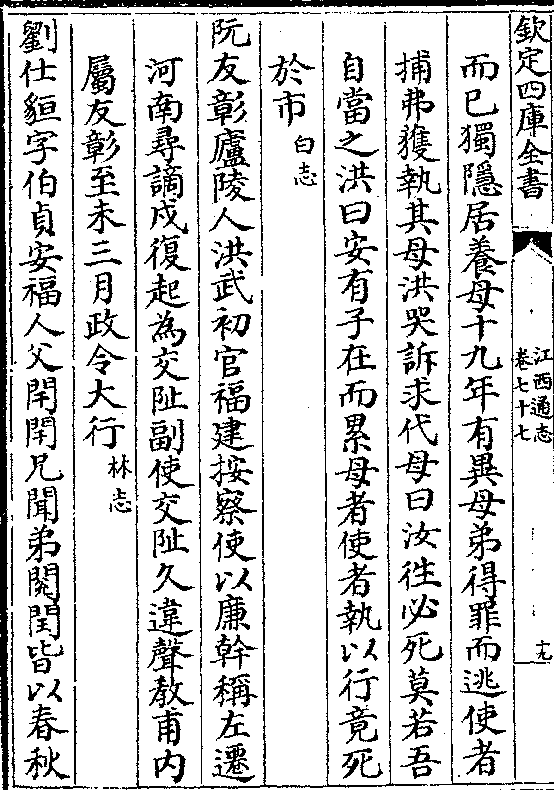 欽定四庫全書
江西通志
卷七十七
十九
而已獨隱居養母十九年有異母弟得罪而逃使者
捕弗獲執其母洪哭訴求代母曰汝徃必死莫若吾
自當之洪曰安有子在而累母者使者執以行竟死
於市白志
阮友彰廬陵人洪武初官福建按察使以廉幹稱左遷
河南尋謫戍復起為交阯副使交阯久違聲敎甫内
屬友彰至未三月政令大行林志
劉仕貆字伯貞安福人父閈閈兄聞弟閱閏皆以春秋